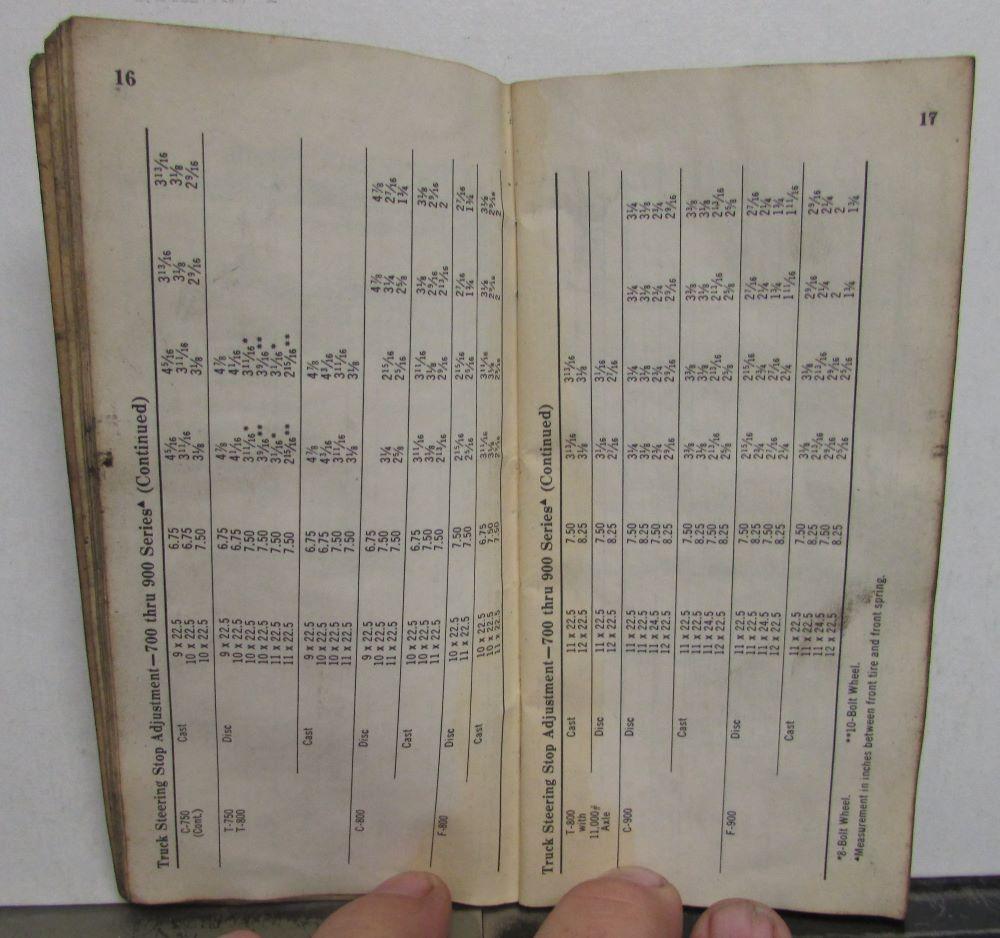 16
Truck Steering Stop Adjustment—700 thru 900 Series▲ (Continued)
C-750 (Cont.) Cast 9 x 22.5 6.75 4 5/16 4 5/16 3 13/16 3 13/16
10 x 22.5 6.75 3 11/16 3 11/16 3 1/8 3 1/8
10 x 22.5 7.50 3 1/8 3 1/8 2 9/16 2 9/16
T-750 Disc 9 x 22.5 6.75 4 7/8 4 7/8
T-800 10 x 22.5 6.75 4 1/16 4 1/16
10 x 22.5 7.50 3 11/16* 3 11/16*
10 x 22.5 7.50 3 9/16** 3 9/16**
11 x 22.5 7.50 3 1/16* 3 1/16*
11 x 22.5 7.50 2 15/16** 2 15/16**
Cast 9 x 22.5 6.75 4 7/8 4 7/8
10 x 22.5 6.75 4 3/16 4 3/16
10 x 22.5 7.50 3 11/16 3 11/16
11 x 22.5 7.50 3 1/8 3 1/8
C-800 Disc 9 x 22.5 6.75 4 7/8 4 7/8
10 x 22.5 7.50 3 1/4 2 15/16 3 1/4 2 7/16
11 x 22.5 7.50 2 5/8 2 5/16 2 5/8 1 3/4
Cast 10 x 22.5 6.75 3 11/16 3 11/16 3 1/8 3 1/8
10 x 22.5 7.50 3 1/8 3 1/8 2 9/16 2 9/16
11 x 22.5 7.50 2 13/16 2 9/16 2 13/16 2
F-800 Disc 10 x 22.5 7.50 2 15/16 2 15/16 2 7/16 2 7/16
11 x 22.5 7.50 2 5/16 2 5/16 1 3/4 1 3/4
Cast 10 x 22.5 6.75 3 11/16 3 11/16 3 1/8 3 1/8
10 x 22.5 7.50 3 1/8 3 1/8 2 9/16 2 9/16
11 x 22.5 7.50 2 9/16 2 9/16 2 2
17
Truck Steering Stop Adjustment—700 thru 900 Series▲ (Continued)
T-800 Cast 11 x 22.5 7.50 3 13/16 3 13/16
with 12 x 22.5 8.25 3 1/8 3 1/8
11,000# Disc 11 x 22.5 7.50 3 1/16 3 1/16
Axle 12 x 22.5 8.25 2 7/16 2 7/16
C-900 Disc 11 x 22.5 7.50 3 1/4 3 1/4 3 1/4 3 1/4
11 x 22.5 8.25 3 1/8 3 1/8 3 1/8 3 1/8
11 x 24.5 7.50 2 3/4 2 3/4 2 3/4 2 3/4
12 x 22.5 8.25 2 9/16 2 9/16 2 9/16 2 9/16
Cast 11 x 22.5 7.50 3 3/8 3 3/8 3 3/8 3 3/8
11 x 22.5 8.25 3 1/8 3 1/8 3 1/8 3 1/8
11 x 24.5 7.50 2 13/16 2 13/16 2 11/16 2 13/16
12 x 22.5 8.25 2 5/8 2 5/8 2 5/8 2 5/8
F-900 Disc 11 x 22.5 7.50 2 15/16 2 15/16 2 7/16 2 7/16
11 x 22.5 8.25 2 3/4 2 3/4 2 1/4 2 1/4
11 x 24.5 7.50 2 7/16 2 7/16 1 3/4 1 3/4
12 x 22.5 8.25 2 1/4 2 1/4 1 11/16 1 11/16
Cast 11 x 22.5 7.50 3 1/8 3 1/8 2 9/16 2 9/16
11 x 22.5 8.25 2 13/16 2 13/16 2 1/4 2 1/4
11 x 24.5 7.50 2 9/16 2 9/16 2 2
12 x 22.5 8.25 2 5/16 2 5/16 1 3/4 1 3/4
*8-Bolt Wheel. **10-Bolt Wheel.
▲Measurement in inches between front tire and front spring.